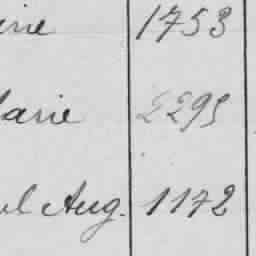 erie 1753
larie 2295
ul Aug. 1172